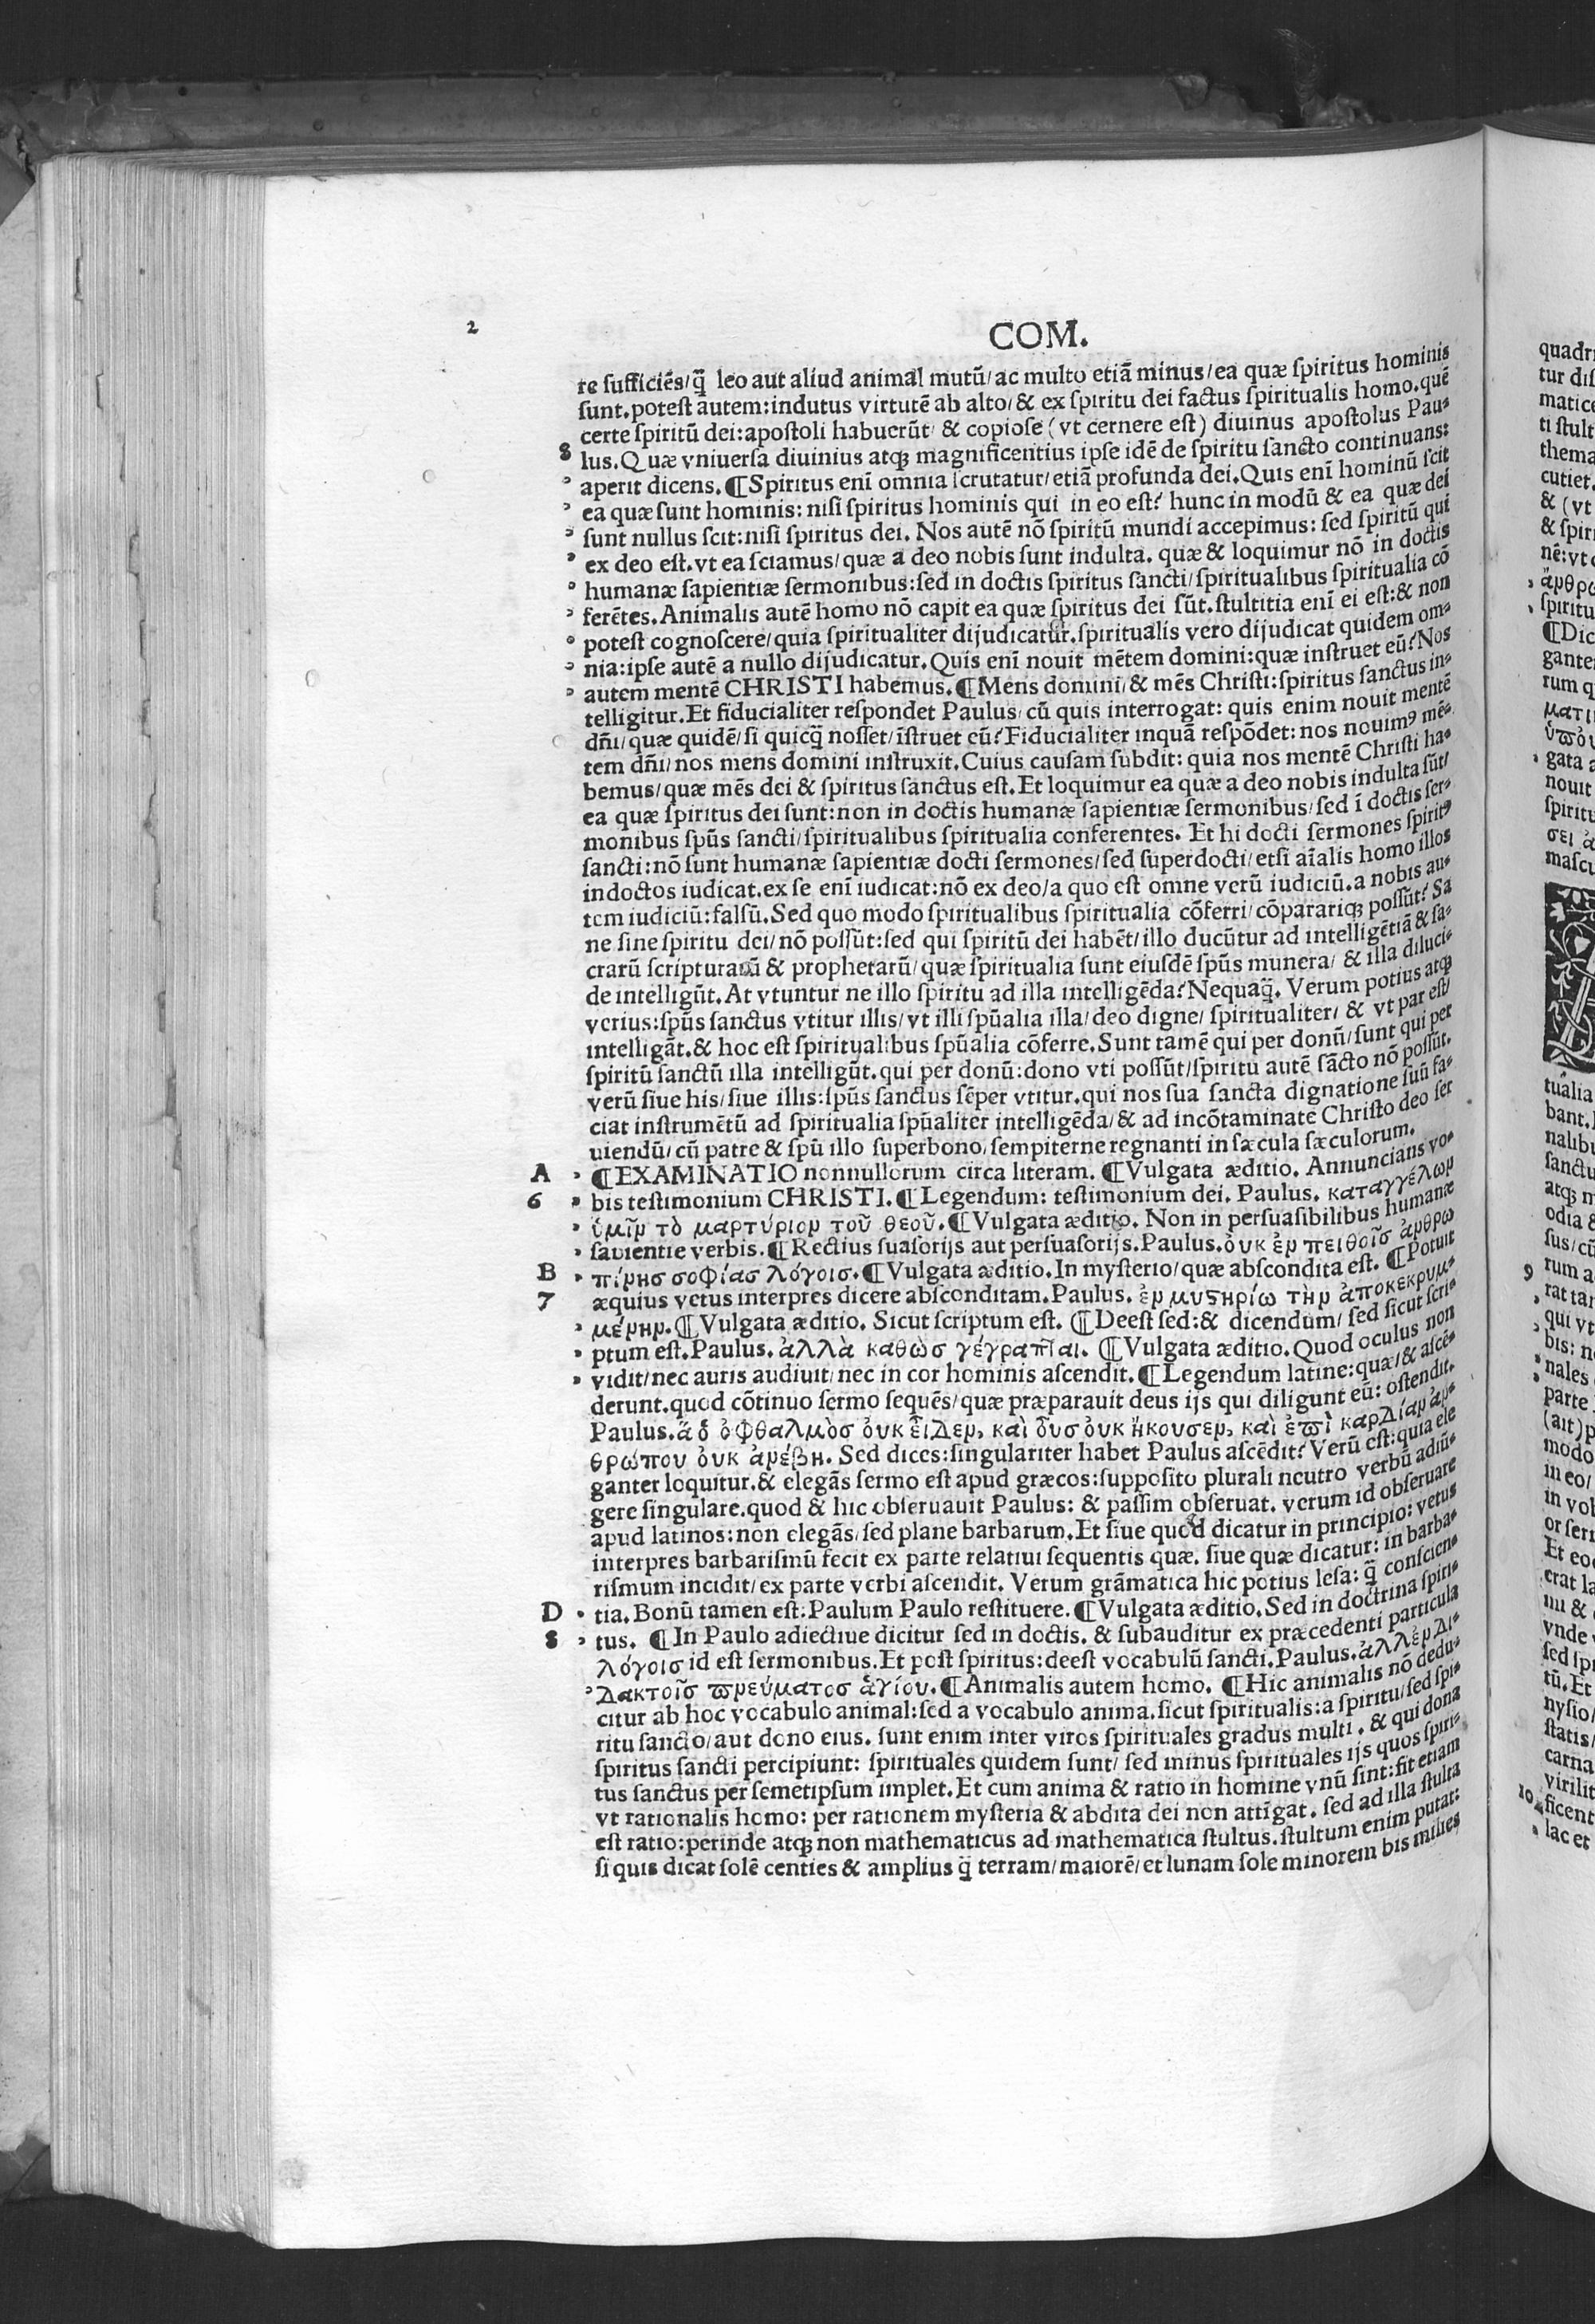 2
COM.
re sufficiēs/q̄ leo aut aliud animal mutū/ac multo etiā minus/ea quæ spiritus hominis
sunt.potest autem:indutus virtutē ab alto/& ex spiritu dei factus spiritualis homo.quē
certe spiritū dei:apostoli habuerūt/ & copiose (vt cernere est) diuinus apostolus Pau-
8 lus.Quæ vniuersa diuinius atq; magnificentius ipse idē de spiritu sancto continuans:
aperit dicens.¶Spiritus enī omnia scrutatur/etiā profunda dei.Quis enī hominū scit
ea quæ sunt hominis: nisi spiritus hominis qui in eo est? hunc in modū & ea quæ dei
sunt nullus scit:nisi spiritus dei. Nos autē nō spiritū mundi accepimus: sed spiritū qui
ex deo est.vt ea sciamus/quæ a deo nobis sunt indulta. quæ & loquimur nō in doctis
humanæ sapientiæ sermonibus:sed in doctis spiritus sancti/spiritualibus spiritualia cō
ferētes.Animalis autē homo nō capit ea quæ spiritus dei sūt.stultitia enī ei est:& non
potest cognoscere/quia spiritualiter dijudicatur.spiritualis vero dijudicat quidem om-
nia:ipse autē a nullo dijudicatur.Quis enī nouit mētem domini:quæ instruet eū?Nos
autem mentē CHRISTI habemus.¶Mens domini/& mēs Christi:spiritus sanctus in-
telligitur.Et fiducialiter respondet Paulus/cū quis interrogat: quis enim nouit mentē
dñi/quæ quidē/si quicq̄ nosset/īstruet eū?Fiducialiter inquā respōdet: nos nouimꝰ mē-
tem dñi/nos mens domini instruxit.Cuius causam subdit: quia nos mentē Christi ha-
bemus/quæ mēs dei & spiritus sanctus est.Et loquimur ea quæ a deo nobis indulta sūt/
ea quæ spiritus dei sunt:non in doctis humanæ sapientiæ sermonibus/sed ī doctis ser-
monibus spūs sancti/spiritualibus spiritualia conferentes. Et hi docti sermones spiritꝰ
sancti:nō sunt humanæ sapientiæ docti sermones/sed superdocti/etsi aīalis homo illos
indoctos iudicat.ex se enī iudicat:nō ex deo/a quo est omne verū iudiciū.a nobis au-
tem iudiciū:falsū.Sed quo modo spiritualibus spiritualia cōferri/cōpararīq; possūt? Sa
ne sine spiritu dei/nō possūt:sed qui spiritū dei habēt/illo ducūtur ad intelligētiā & sa-
crarū scripturarū & prophetarū/quæ spiritualia sunt eiusdē spūs munera/ & illa diluci-
de intelligūt.At vtuntur ne illo spiritu ad illa intelligēda?Nequaq̄. Verum potius atq;
verius:spūs sanctus vtitur illis/vt illi spūalia illa/deo digne/spiritualiter/ & vt par est/
intelligāt.& hoc est spiritualibus spūalia cōferre.Sunt tamē qui per donū/sunt qui per
spiritū sanctū illa intelligūt.qui per donū:dono vti possūt/spiritu autē sācto nō possūt.
verū siue his/siue illis:spūs sanctus sēper vtitur.qui nos sua sancta dignatione suū fa-
ciat instrumētū ad spiritualia spūaliter intelligēda/& ad incōtaminate Christo deo ser
uiendū/cū patre & spū illo superbono/sempiterne regnanti in sæcula sæculorum.
A ¶EXAMINATIO nonnullorum circa literam. ¶Vulgata æditio. Annuncians vo-
6 bis testimonium CHRISTI.¶Legendum: testimonium dei. Paulus. καταγγέλωμ
ὑμῖν τὸ μαρτύριον τοῦ θεοῦ.¶Vulgata æditio. Non in persuasibilibus humanæ
sapientie verbis.¶Rectius suasorijs aut persuasorijs.Paulus.ὀυκ ἐν πειθοῖσ ἀνθρω
B πίνησ σοφίασ λόγοισ.¶Vulgata æditio.In mysterio/quæ abscondita est. ¶Potuit
7 æquius vetus interpres dicere absconditam.Paulus. ἐν μυϛηρίω τὴν ἀποκεκρυμ-
μένην.¶Vulgata æditio. Sicut scriptum est. ¶Deest sed:& dicendum/ sed sicut scri-
ptum est.Paulus. ἀλλὰ καθὼσ γέγραπται. ¶Vulgata æditio.Quod oculus non
vidit/nec auris audiuit/nec in cor hominis ascendit.¶Legendum latine:quæ/& ascē-
derunt.quod cōtinuo sermo sequēs/quæ præparauit deus ijs qui diligunt eū: ostendit.
Paulus.ἃ ὁ ὀφθαλμὸσ ὀυκ εἶδεν, καὶ ὀῦσ ὀυκ ἤκουσεν, καὶ ἐπὶ καρδίαν ἀν-
θρώπου ὀυκ ἀνέβη. Sed dices:singulariter habet Paulus ascēdit? Verū est:quia ele
ganter loquitur.& elegās sermo est apud græcos:supposito plurali neutro verbū adiū-
gere singulare.quod & hic obseruauit Paulus: & passim obseruat. verum id obseruare
apud latinos:non elegās/sed plane barbarum.Et siue quod dicatur in principio: vetus
interpres barbarismū fecit ex parte relatiui sequentis quæ. siue quæ dicatur: in barba-
rismum incidit/ex parte verbi ascendit. Verum grāmatica hic potius lesa: q̄ conscien-
D tia.Bonū tamen est:Paulum Paulo restituere.¶Vulgata æditio.Sed in doctrina spiri-
8 tus. ¶In Paulo adiectiue dicitur sed in doctis. & subauditur ex præcedenti particula
λόγοισ id est sermonibus.Et post spiritus:deest vocabulū sancti.Paulus.ἀλλ ἐν δι-
δακτοῖσ πνεύματοσ ἁγίου.¶Animalis autem homo. ¶Hic animalis nō dedu-
citur ab hoc vocabulo animal:sed a vocabulo anima.sicut spiritualis:a spiritu/sed spi-
ritu sancto/aut dono eius. sunt enim inter viros spirituales gradus multi. & qui dona
spiritus sancti percipiunt: spirituales quidem sunt/ sed minus spirituales ijs quos spiri-
tus sanctus per semetipsum implet.Et cum anima & ratio in homine vnū sint:fit etiam
vt rationalis homo: per rationem mysteria & abdita dei non attīgat. sed ad illa stulta
est ratio:perinde atq; non mathematicus ad mathematica stultus.stultum enim putat:
si quis dicat solē centies & amplius q̄ terram/maiorē/et lunam sole minorem bis milies